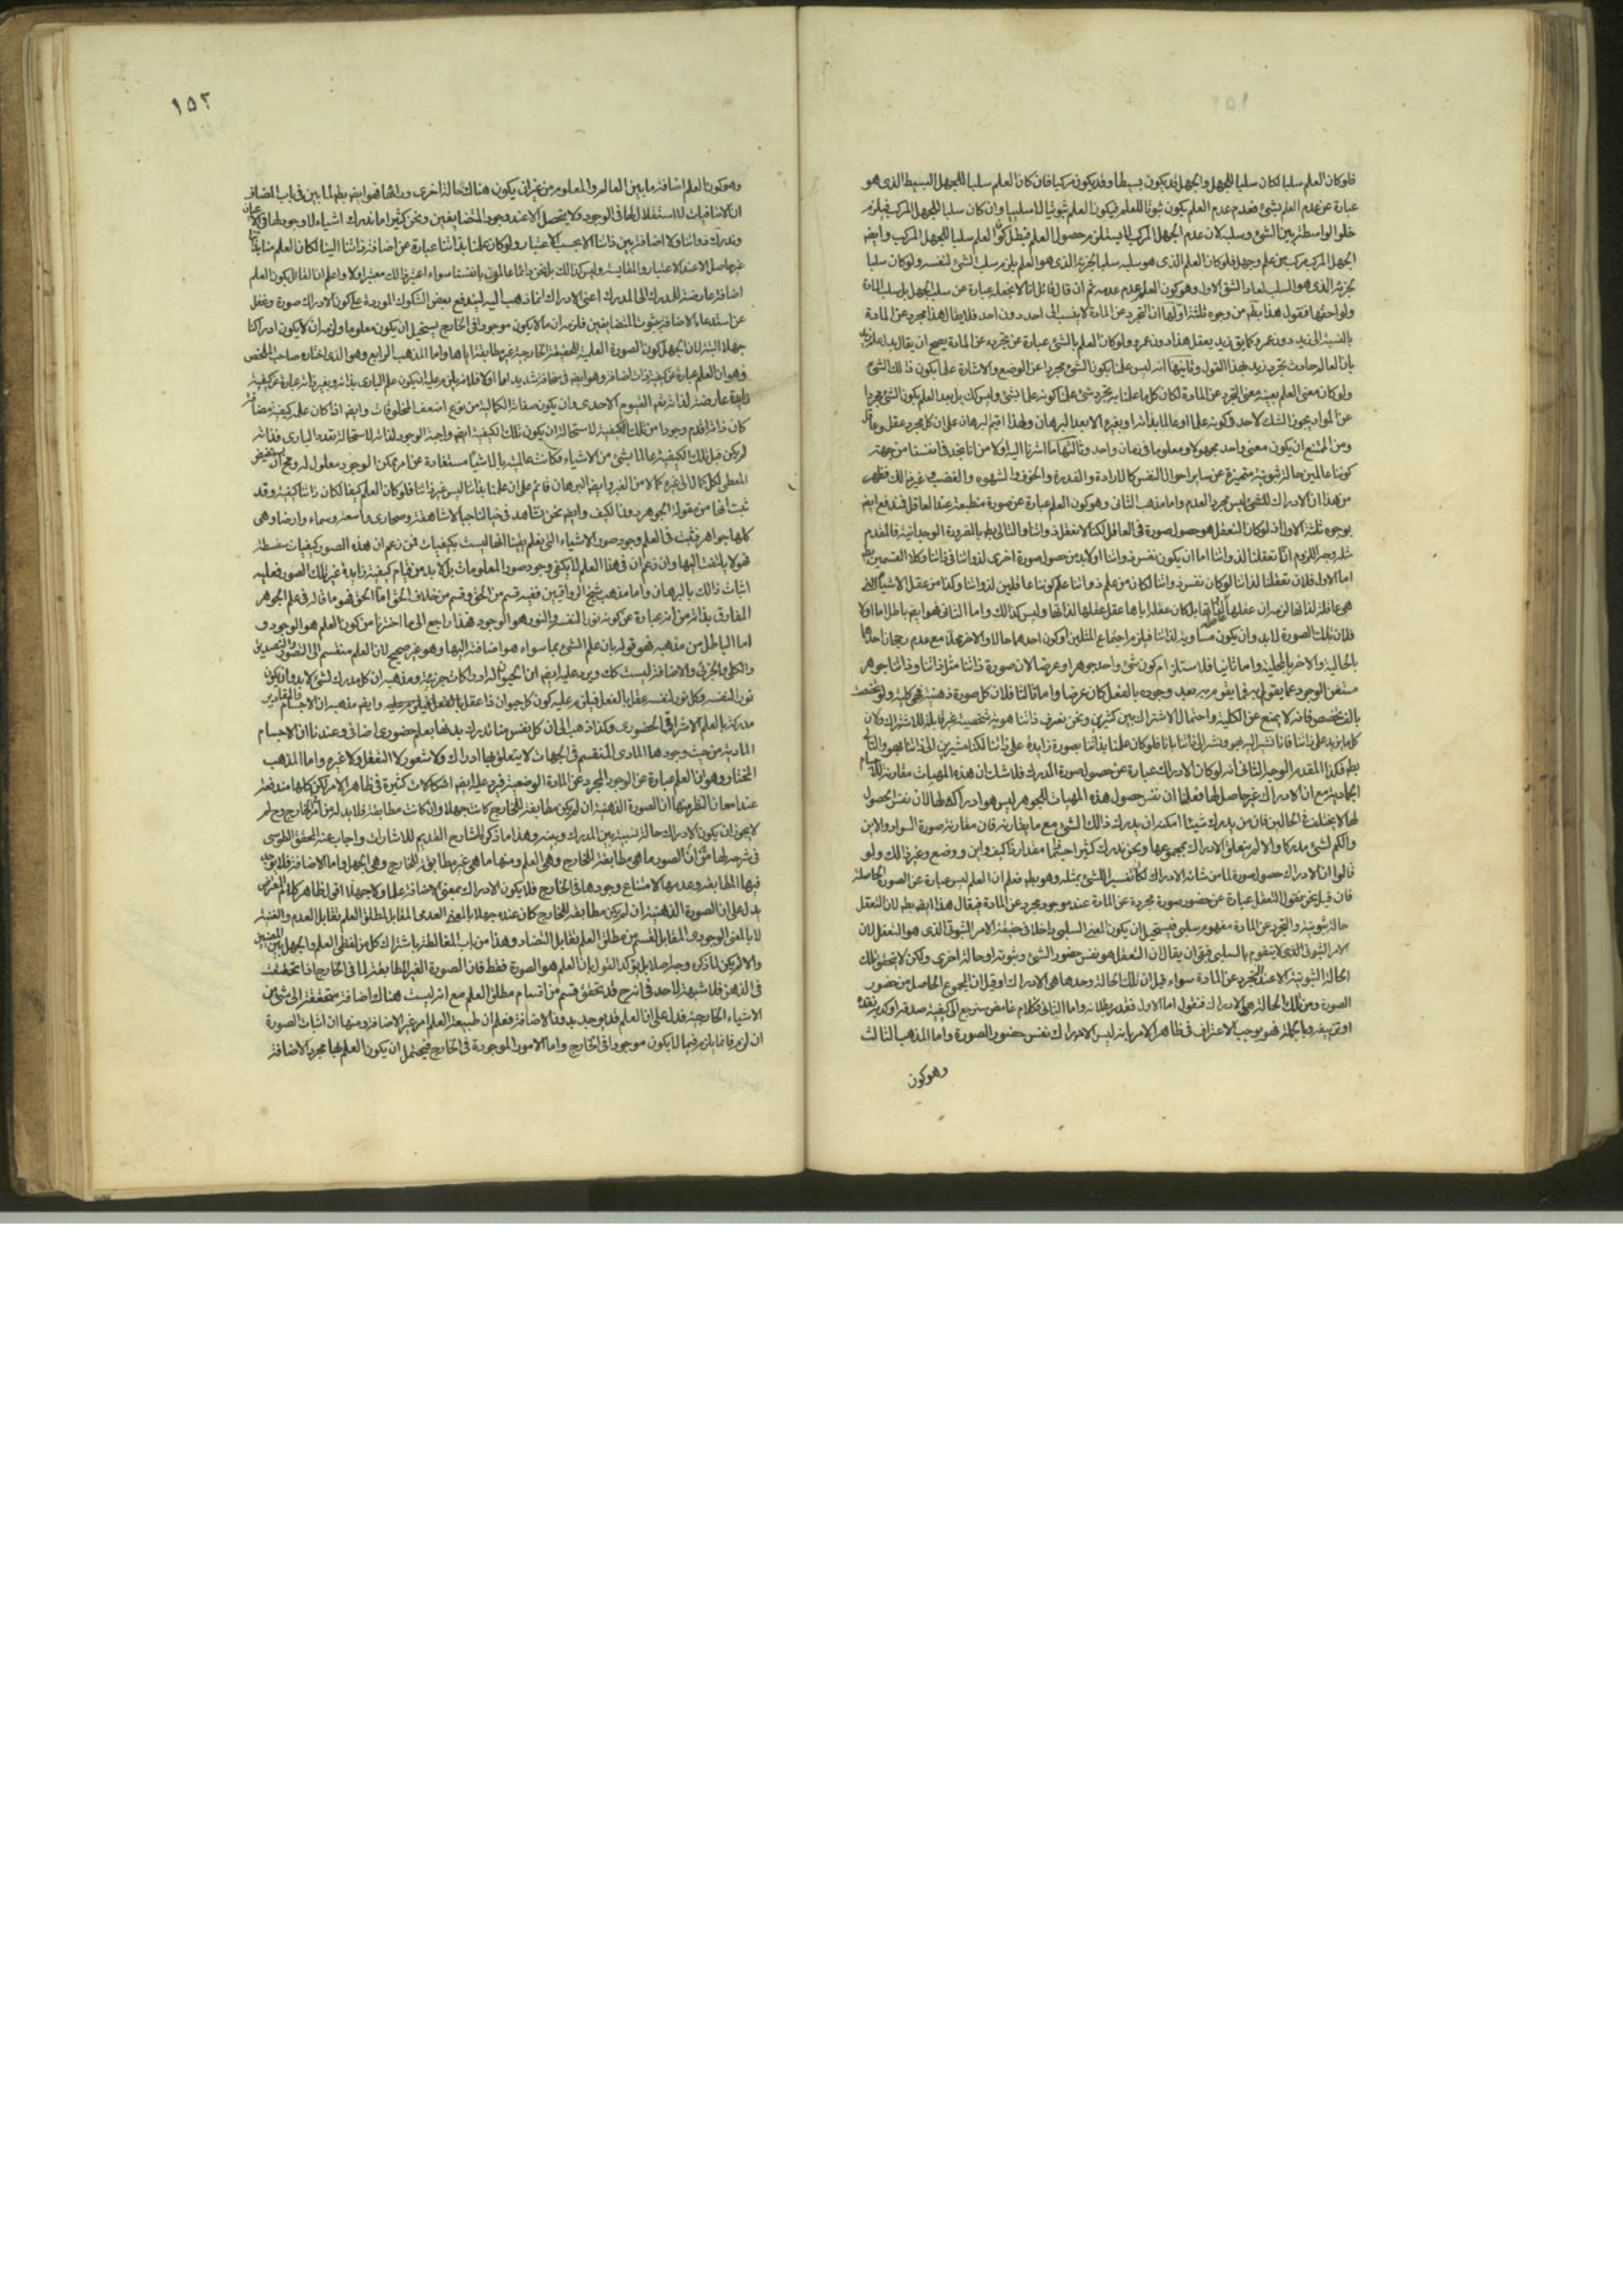 فلو كان العلم سلبا لكان سلبا للجهل والجهل قد يكون بسيطا وقد يكون مركبا فان كان العلم سلبا للجهل البسيط الذى هو
عبارة عن عدم العلم بشئ فعدم عدم العلم يكون ثبوتا للعلم فيكون العلم ثبوتيا لا سلبيا وان كان سلبا للجهل المركب فيلزم
خلو الواسطة بين الشئ وسلبه لان عدم الجهل المركب لا يستلزم حصول العلم فبطل كون العلم سلبا للجهل المركب وايضم
الجهل المركب مركب من علم وجهل فلو كان العلم الذى هو سلبه سلبا لجزئه الذى هو العلم يلزم سلب الشئ لنفسه ولو كان سلبا
لجزئه الذى هو السلب لعاد الشق الاول وهو كون العلم عدم عدمه ثم ان قال قائل انا لا نجعله عبارة عن سلب الجهل بل سلب المادة
ولواحقها فنقول هذا بط من وجوه ثلثة اولها ان التجرد عن المادة لا ينسب الى احد دون احد فلا يقال هذا مجرد عن المادة
بالنسبة الى زيد دون عمرو كما يق زيد يعقل هذا دون عمرو ولو كان العلم بالشئ عبارة عن تجرده عن المادة يصح ان يقال بدل علم زيد
بان العالم حادث تجرد زيد لهذا القول وثانيها انه ليس علمنا بكون الشئ مجردا عن الوضع والاشارة علما بكون ذلك الشئ
ولو كان معنى العلم بعينه معنى التجرد عن المادة لكان كل ما علمنا تجرد شئ علمنا كونه علما بشئ وليس كك بل بعد العلم بكون الشئ مجردا
عن المواد يجوز الشك لاحد فى كونه علما او عالما بذاته او بغيره الا بعد البرهان ولهذا اقيم البرهان على ان كل مجرد عقل وعاقل
ومن الممتنع ان يكون معنى واحد مجهولا ومعلوما فى زمان واحد وثالثها ما اشرنا اليه اولا من انا نجد فى انفسنا من جهة
كوننا عالمين حالة ثبوتية متميزة عن ساير احوال النفس كالارادة والقدرة والخوف والشهوه والغضب وغير ذلك فظهر
من هذا ان الادراك للشئ ليس مجرد العدم واما مذهب الثانى وهو كون العلم عبارة عن صورة منطبعة عند العاقل فيندفع ايضم
بوجوه ثلثة الاول انه لو كان التعقل هو حصول صورة فى العاقل لكنا لا نعقل ذواتنا والتالى بط بالضرورة الوجدانية فالمقدم
مثله وجه اللزوم انا تعقلنا لذواتنا اما ان يكون نفس ذواتنا او لا بد من حصول صورة اخرى لذواتنا فى ذاتنا وكلا القسمين بط
اما الاول فلان تعقلنا لذاتنا لو كان نفس ذواتنا لكان من علم ذواتنا علم كوننا عاقلين لذواتنا وكذا من عقل الاشياء التى
هى عاقلة لذاتها لزم ان عقلها بل كان عقله اياها عقل عقلها لذاتها وليس كذالك واما الثانى فهو ايضم باطل اما اولا
فلان تلك الصورة لا بد وان يكون مساوية لذاتنا فيلزم اجتماع المثلين او كون احدهما حالا والاخر محلا مع عدم رجحان احدهما
بالحالية والاخر بالمحلية واما ثانيا فلاستلزام كون شئ واحد جوهرا وعرضا لان صورة ذاتنا مثل ذاتنا وذاتنا جوهر
بالف تخصص فانه لا يمنع عن الكلية واحتمال الاشتراك بين كثيرين ونحن نعرف ذاتنا هوية شخصية غير قابلة للاشتراك ولان
كل ما يزيد على ذاتنا فانا نشير اليه بهو ونشير الى ذاتنا بانا فلو كان علمنا بذاتنا بصورة زايدة على ذاتنا لكنا مشيرين الى ذاتنا بهو والتالى
بط فكذا المقدم الوجه الثانى انه لو كان الادراك عبارة عن حصول صورة المدرك فلا شك ان هذه المهيات مقارنة للاجسام
الجمادية مع ان الادراك غير حاصل لها فعلمنا ان نفس حصول هذه المهيات للجوهر ليس هو ادراكه لها لان نفس الحصول
لها لا يختلف فى الحالين فان من يدرك شيئا امكنه ان يدرك ذالك الشئ مع ما يقارنه فان مقارنة صورة السواد والاين
والكم لشئ مدركا والا لم يتعلق الادراك بمجموعها ونحن ندرك كثيرا جسما مقدارا ذا كيف واين ووضع وغير ذالك ولو
قالوا ان الادراك حصول صورة لما من شانه الادراك لكان تفسيرا للشئ بمثله وهو بط فعلم ان العلم ليس عبارة عن الصورة الحاصلة
فان قيل نحن نقول التعقل عبارة عن حضور صورة مجردة عن المادة عند موجود مجرد عن المادة فيقال هذا ايضم بط لان التعقل
حالة ثبوتية والتجرد عن المادة مفهوم سلبى فيستحيل ان يكون المعنى السلبى داخلا فى حقيقة الامر الثبوتى الذى هو التعقل لان
الامر الثبوتى الذى لا يتقوم بالسلبى فبقى ان يقال ان التعقل هو نفس حضور الشئ وثبوته او حالة اخرى ولكن لا يتحقق تلك
الحالة الثبوتية الا عند التجرد عن المادة سواء قيل ان تلك الحالة وحدها هى الادراك او قيل ان المجموع الحاصل من حضور
الصورة ومن تلك الحالة هى الادراك فنقول اما الاول فقد مر بطلانه واما الثانى فكلام غامض سنرجع الى كيفية صدقه او كذبه
او تزييفه وبالجملة فهو يوجب الاعتراف فى ظاهر الامر بانه ليس الادراك نفس حضور الصورة واما المذهب الثالث
وهو كون
١٥٢
وهو كون العلم اضافة ما بين العالم والمعلوم من غير ان يكون هناك حالة اخرى وراءها فهو ايضم بط لما بين فى باب المضاف
ان الاضافيات لا استقلال لها فى الوجود ولا يتحصل الا عند وجود المتضايفين ونحن كثيرا ما ندرك اشياء لا وجود لها فى الاعيان
وندرك ذواتنا ولا اضافة بين ذاتنا الا بحسب الاعتبار ولو كان علمنا بذاتنا عبارة عن اضافة ذاتنا الينا لكان العلم منا بذاتنا
غير حاصل الا عند الاعتبار والمقايسة وليس كذالك بل نحن دائما عالمون بانفسنا سواء اعتبر ذالك معتبر او لا واعلم ان القائل بكون العلم
اضافة عارضة للمدرك الى المدرك اعنى الادراك انما ذهب اليه ليندفع بعض الشكوك الموردة على كون الادراك صورة وغفل
عن استدعاء الاضافة ثبوت المتضايفين فلزمه ان ما لا يكون موجودا فى الخارج يستحيل ان يكون معلوما ولزمه ان لا يكون ادراكنا
جهلا البتة لان الجهل كون الصورة العلمية للحقيقة الخارجية غير مطابقة اياها واما المذهب الرابع وهو الذى اختاره صاحب الملخص
وهو ان العلم عبارة عن كيفية ذات اضافة وهو ايضم فى سخافة شديد اما اولا فلانه يلزم عليه ان يكون علم البارى بذاته وبغير ذاته عبارة عن كيفية
زايدة عارضة لذاته تعم القيوم الاحدى وان يكون صفاته الكمالية من نوع اضعف المخلوقات وايضم اذا كان علمه كيفية مضافة
كان ذاته اقدم وجودا من تلك الكيفية لاستحالة ان يكون تلك الكيفية ايضم واجبة الوجود لذاته لاستحالة تعدد البارى فذاته
لم يكن قبل تلك الكيفية عالما بشئ من الاشياء فكانت عالميته بالاشياء مستفادة عن امر ممكن الوجود معلول له ومحال ان يستفيض
المعطى لكل كمال الى غيره كمالا من الغير وايضم البرهان قائم على ان علمنا بذاتنا ليس غير ذاتنا فلو كان العلم كيفا لكان ذاتنا كيفية وقد
ثبت انها من مقولة الجوهر دون الكيف وايضم نحن نشاهد فى خيالنا جبالا شاهقة وصحارى واسعة وسماء وارضا وهى
كلها جواهر فثبت فى العلم وجود صور الاشياء التى نعلم يقينا انها ليست بكيفيات فمن زعم ان هذه الصور كيفيات سفسطة
فهو لا يلتفت اليها وان زعم ان فى هذا العلم لا يكفى وجود صور المعلومات بل لا بد من قيام كيفية زايدة غير تلك الصور فعليه
اثبات ذالك بالبرهان واما مذهب شيخ الرواقيين ففيه قسم من الحق وقسم من خلاف الحق اما الحق فهو ما قاله فى علم الجوهر
المفارق بذاته من انه عبارة عن كونه نورا لنفسه والنور هو الوجود فهذا راجع الى ما اخترنا من كون العلم هو الوجود و
اما الباطل من مذهبه فهو قوله بان علم الشئ بما سواه هو اضافته اليها وهو غير صحيح لان العلم منقسم الى التصور والتصديق
والكلى والجزئى والاضافة ليست كك ويرد عليه ايضم ان الحيوانات لها ادراكات جزئية ومذهبه ان كل مدرك لشئ لا بد وان يكون
نورا لنفسه وكل نور لنفسه عقل بالفعل فيلزم عليه كون كل حيوان ذا عقل بالفعل وايضم مذهبه ان الاجسام والمقادير
مدركة بالعلم الاشراقى الحضورى وكذا ذهب الى ان كل نفس منا تدرك بدنها بعلم حضورى اضافى وعندنا ان الاجسام
المادية من حيث وجودها المادى المنقسم فى الجهات لا يتعلق بها ادراك ولا شعور لا التعقل ولا غيره واما المذهب
المختار وهو ان العلم عبارة عن الوجود المجرد عن المادة الوضعية فيرد عليه ايضم اشكالات كثيرة فى ظاهر الامر لكن كلها مندفعة
عند امعان النظر منها ان الصورة الذهنية ان لم يكن مطابقة للخارج كانت جهلا وان كانت مطابقة فلا بد له من امر فى الخارج وح لم
لا يجوز ان يكون الادراك حالة نسبية بين المدرك وبينه وهذا ما ذكره الشارح القديم للاشارات واجاب عنه المحقق الطوسى
فى شرحه لها بان من الصور ما هى مطابقة للخارج وهى العلم ومنها ما هى غير مطابقة للخارج وهى الجهل واما الاضافة فلا يوجد
فيها المطابقة وعدمها لامتناع وجودها فى الخارج فلا يكون الادراك بمعنى الاضافة علما ولا جهلا اقول ظاهر كلام المعترض
يدل على ان الصورة الذهنية ان لم يكن مطابقة للخارج كان عنده جهلا بالمعنى العدمى المقابل لمطلق العلم تقابل العدم والقنية
لا بالمعنى الوجودى المقابل لقسم من مطلق العلم تقابل التضاد وهذا من باب المغالطة باشتراك كل من لفظى العلم والجهل بين المعنيين
والا لم يكن لما ذكره وجه اصلا بل يؤكد القول بان العلم هو الصورة فقط فان الصورة الغير المطابقة لما فى الخارج اذا تحققت
فى الذهن فلا شبهة لاحد فى انه ح قد تحقق قسم من اقسام مطلق العلم مع انه ليست هناك اضافة متحققة الى شئ من
الاشياء الخارجية فدل على ان العلم قد يوجد بدون الاضافة فعلم ان طبيعة العلم امر غير الاضافة ومنها ان اثبات الصورة
ان لزم فانما يلزم فيما لا يكون موجودا فى الخارج واما الامور الموجودة فى الخارج فيحتمل ان يكون العلم بها مجرد الاضافة